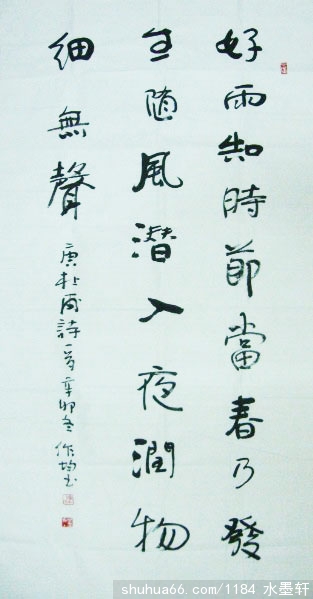 好雨知時節當春乃發
生随風潜入夜潤物
細無聲 唐杜甫詩一首辛卯冬
shuhua66.com/1184 水墨轩